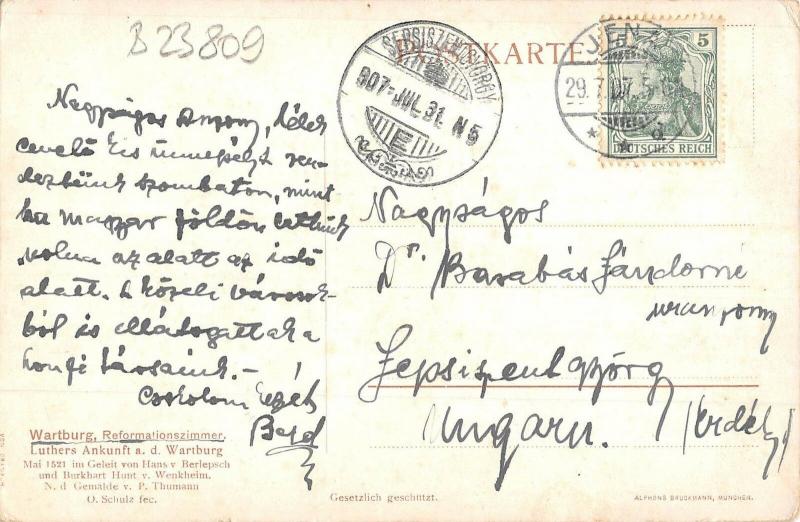 B 23809
POSTKARTE
SEPSISZENTGYÖRGY
907-JUL.31. N5
E
JENA
29.7.07.5-
* * d
5
5
DEUTSCHES REICH
Nagyságos Asszony, lélek
emelő kis ünnepélyt ren-
deztünk szombaton, mint
ha magyar földön lettünk
volna az alatt az idő
alatt. A közeli városok-
ból is ellátogattak a
honfi társaink.-
Csókolom kezét
Nagyságos
Dr. Barabás Sándorné
uraszony
Sepsiszentgyörgy
Ungarn. (Erdély)
Wartburg, Reformationszimmer.
Luthers Ankunft a. d. Wartburg
Mai 1521 im Geleit von Hans v Berlepsch
und Burkhart Hunt v. Wenkheim.
N. d Gemälde v. P. Thumann
O. Schulz fec.
Gesetzlich geschützt.
ALPHONS BRUCKMANN, MÜNCHEN.